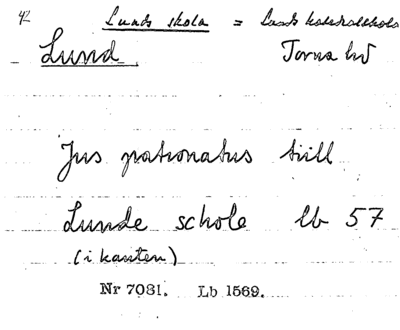 42 Lunds skola = Lunds katedralskola
Lund Torna hd
Jus patronatus till
Lunde schole lb 57
(i kanten)
Nr 7031. Lb 1569.